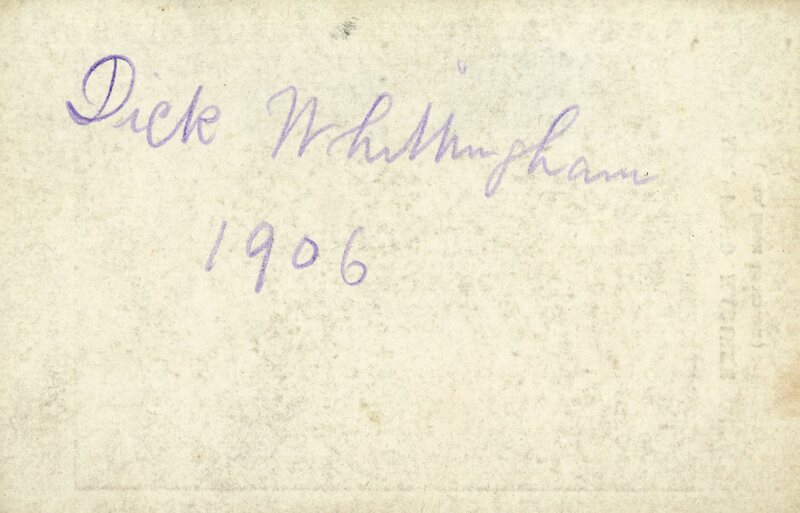 Dick Whittingham
1906